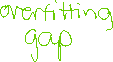 overfitting
gap